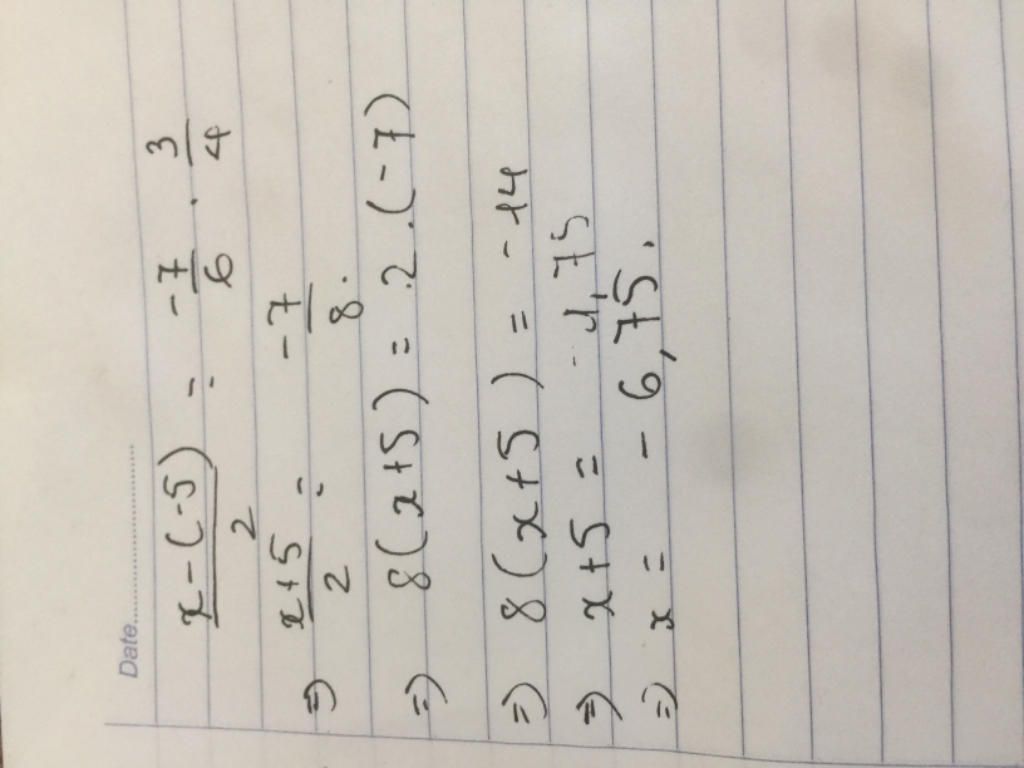 Date...............
x-(-5)/2 = -7/6 . 3/4
⇒ x+5/2 = -7/8.
⇒ 8(x+5) = .2.(-7)
⇒ 8(x+5) = -14
⇒ x+5 = -1,75
⇒ x = -6,75.